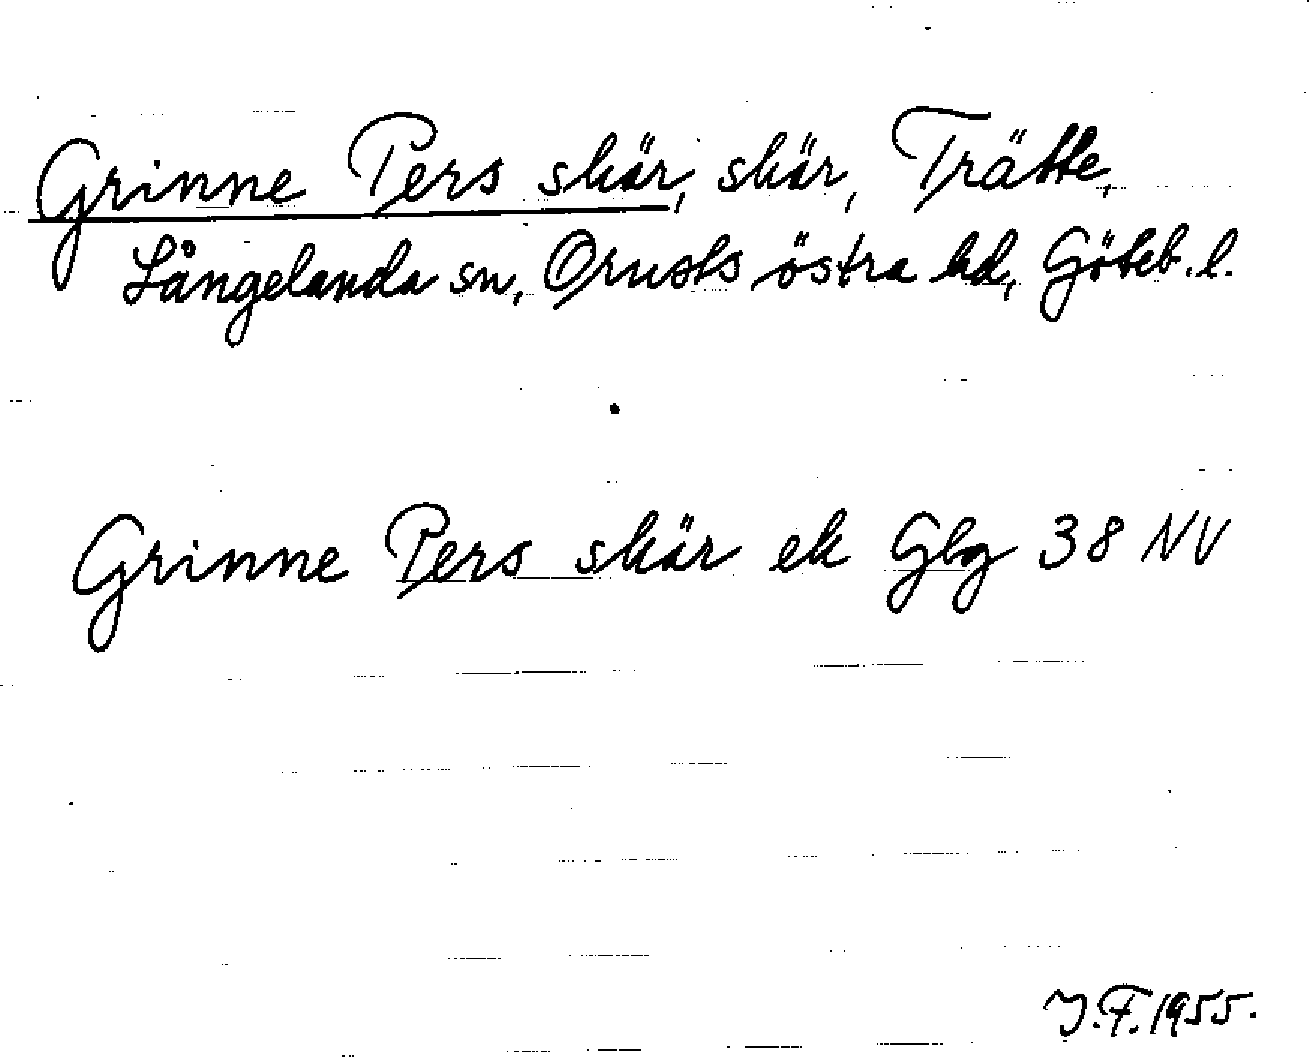 Grinne Pers skär, skär, Trätte,
Långelanda sn, Orusts östra hd, Göteb. l.
Grinne Pers skär ek Gbg 38 NV
J.F. 1955.